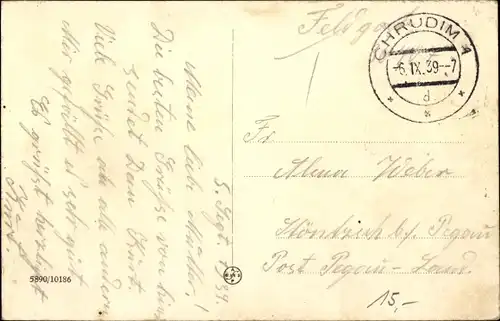 5. Sept. 1939.
Meine liebe Mutter!
Die besten Grüße von hier
sendet Dein Kurt
Viele Grüße an alle anderen
Mir gefällt es sehr gut
Es grüßt herzlichst
Kurt.
Feldpost
CHRUDIM 1
-6.IX.39--7
d
Fr
Alma Weber
Höndrich bf. Pegau
Post Pegau-Land
15,-
5890/10186